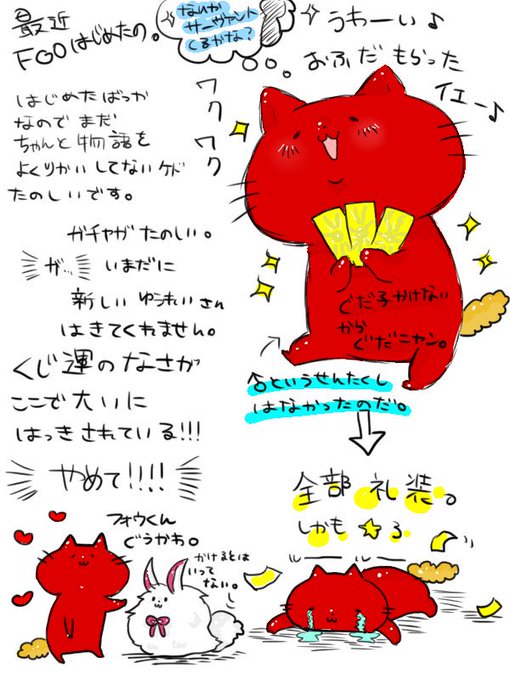 最近
FGOはじめたの。
なんか
サーヴァント
くるかな?
うわーい♪
おふだもらった
イエー♪
ワクワク
はじめたばっか
なのでまだ
ちゃんと物語を
よくりかいしてないケド
たのしいです。
ガチャがたのしい。
が… いまだに
新しいゆうれいさん
はきてくれません。
くじ運のなさが
ここで大いに
はっきされている!!!
やめて!!!!
ぐだ子かけない
から
ぐだニャン。
♂というせんたくし
はなかったのだ。
全部礼装。
しかも☆3
フォウくん
どうかわ。
かけるとは
いって
ない。